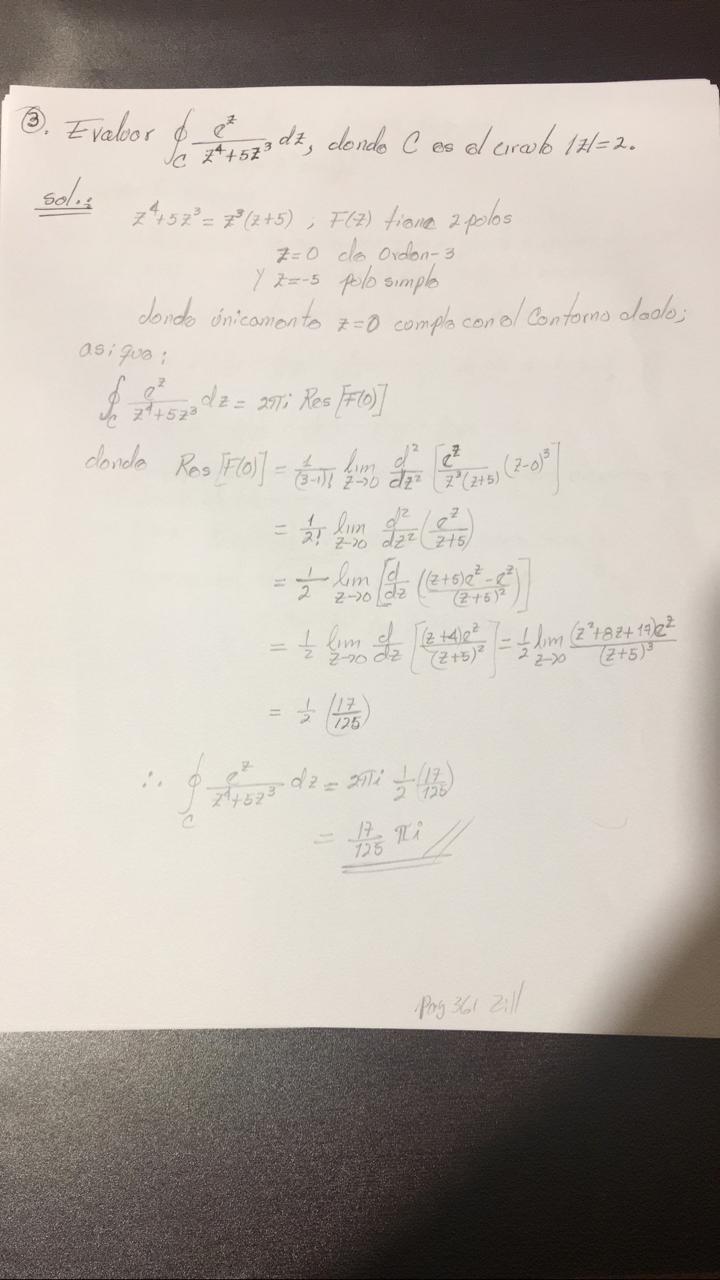 ③. Evaluar ∮_C e^z/(z^4+5z^3) dz, donde C es el circulo |z|=2.
sol.:
z^4+5z^3 = z^3(z+5) ; F(z) tiene 2 polos
z=0 de Orden-3
Y z=-5 polo simple
donde únicamente z=0 cumple con el Contorno dado;
asi que:
∮_C e^z/(z^4+5z^3) dz = 2πi Res [F(0)]
donde Res [F(0)] = 1/(3-1)! lim_{z→0} d^2/dz^2 [e^z/(z^3(z+5)) (z-0)^3]
= 1/2! lim_{z→0} d^2/dz^2 (e^z/(z+5))
= 1/2 lim_{z→0} [d/dz (((z+5)e^z - e^z)/(z+5)^2)]
= 1/2 lim_{z→0} d/dz [(z+4)e^z/(z+5)^2] = 1/2 lim_{z→0} (z^2+8z+17)e^z/(z+5)^3
= 1/2 (17/125)
∴ ∮_C e^z/(z^4+5z^3) dz = 2πi 1/2 (17/125)
= 17/125 πi //
Pag 361 Zill